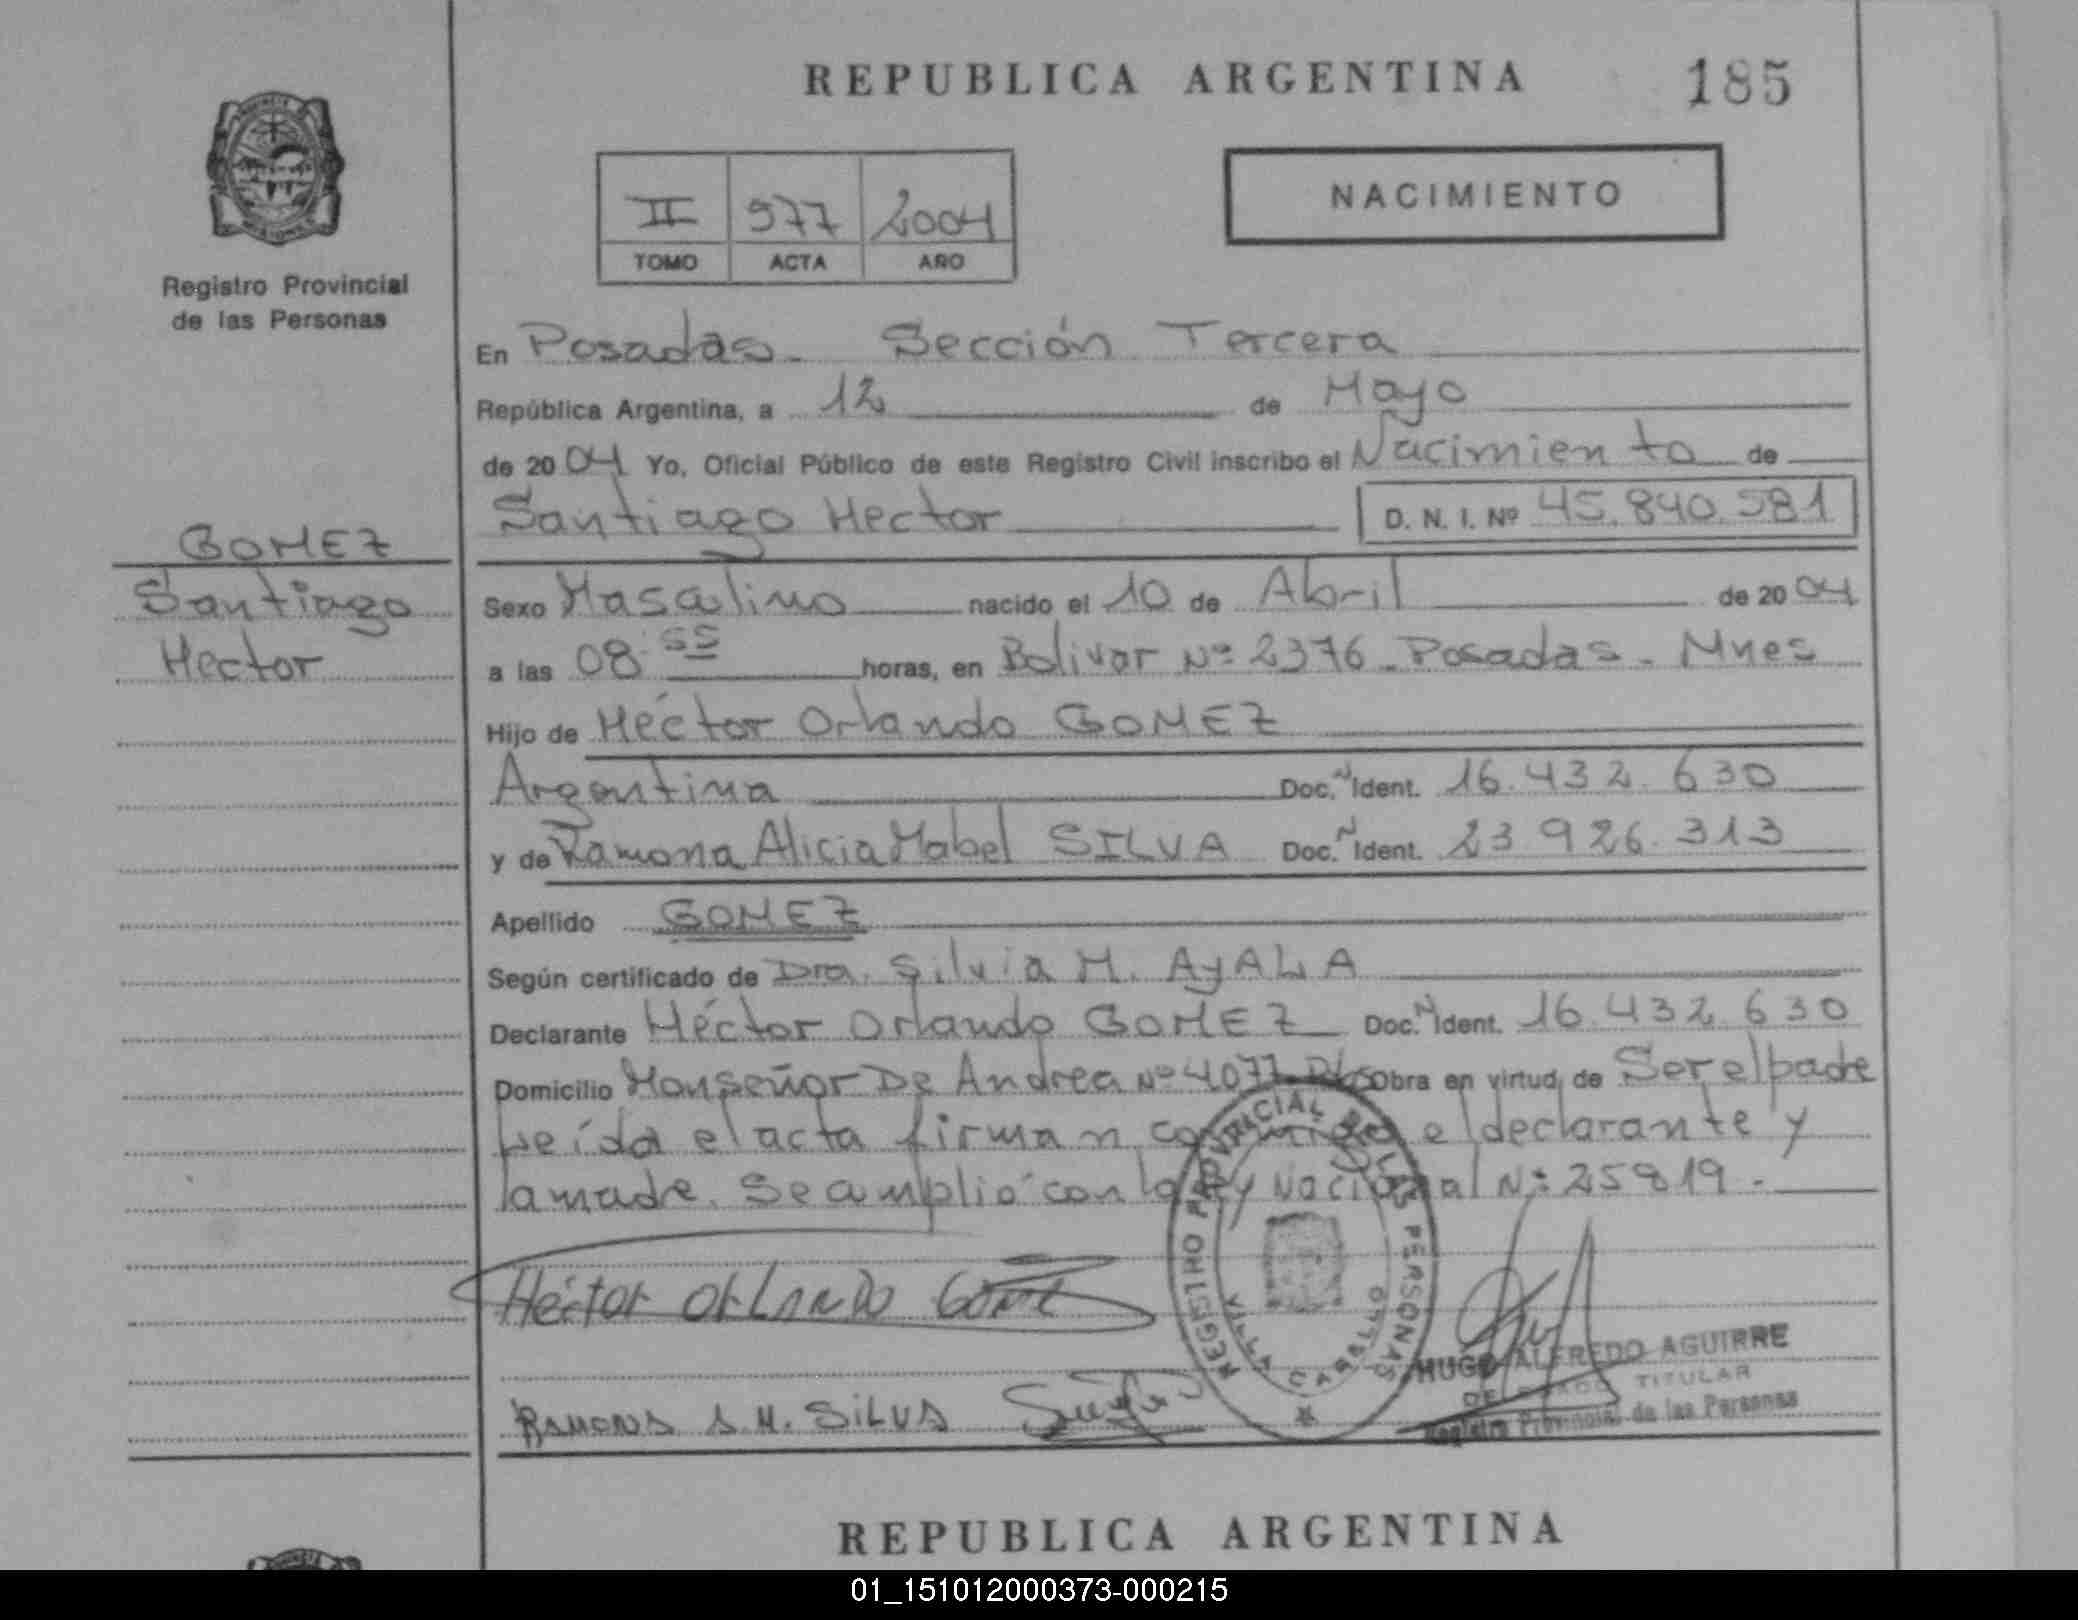 REPUBLICA ARGENTINA
185
II 977 2004
TOMO ACTA AÑO
NACIMIENTO
Registro Provincial
de las Personas
En Posadas - Sección Tercera
República Argentina, a 12 de Mayo
de 2004 Yo, Oficial Público de este Registro Civil inscribo el Nacimiento de
Santiago Hector D. N. I. Nº 45.840.581
GOMEZ
Santiago
Hector
Sexo Masculino nacido el 10 de Abril de 2004
a las 08:55 horas, en Bolivar Nº 2376 - Posadas - Mnes
Hijo de Héctor Orlando GOMEZ
Argentina Doc. N Ident. 16.432.630
y de Ramona Alicia Mabel SILVA Doc. N Ident. 23.926.313
Apellido GOMEZ
Según certificado de Dra. Silvia M. AyALA
Declarante Héctor Orlando GOMEZ Doc. N Ident. 16.432.630
Domicilio Monseñor De Andrea Nº 4077 Obra en virtud de Ser el padre
Leída el acta firman conmigo el declarante y
la madre. Se amplió con la Ley Nacional Nº 25819.-
Héctor ORLANDO GOMEZ
RAMONA A. M. SILVA
REGISTRO PROVINCIAL DE LAS PERSONAS
VILLA CABELLO
HUGO ALFREDO AGUIRRE
DELEGADO TITULAR
Registro Provincial de las Personas
REPUBLICA ARGENTINA
01_151012000373-000215